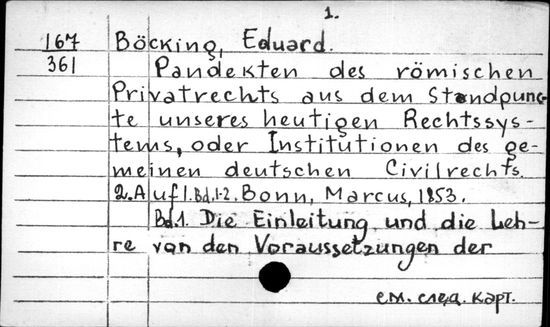 1.
167 Böcking, Eduard.
361 Pandekten des römischen
Privatrechts aus dem Standpunc-
te unseres heutigen Rechtssys-
tems, oder Institutionen des ge-
meinen deutschen Civilrechts.
2. Aufl. Bd. 1-2. Bonn, Marcus, 1853.
Bd. 1. Die Einleitung und die Leh-
re von den Voraussetzungen der
см. след. карт.